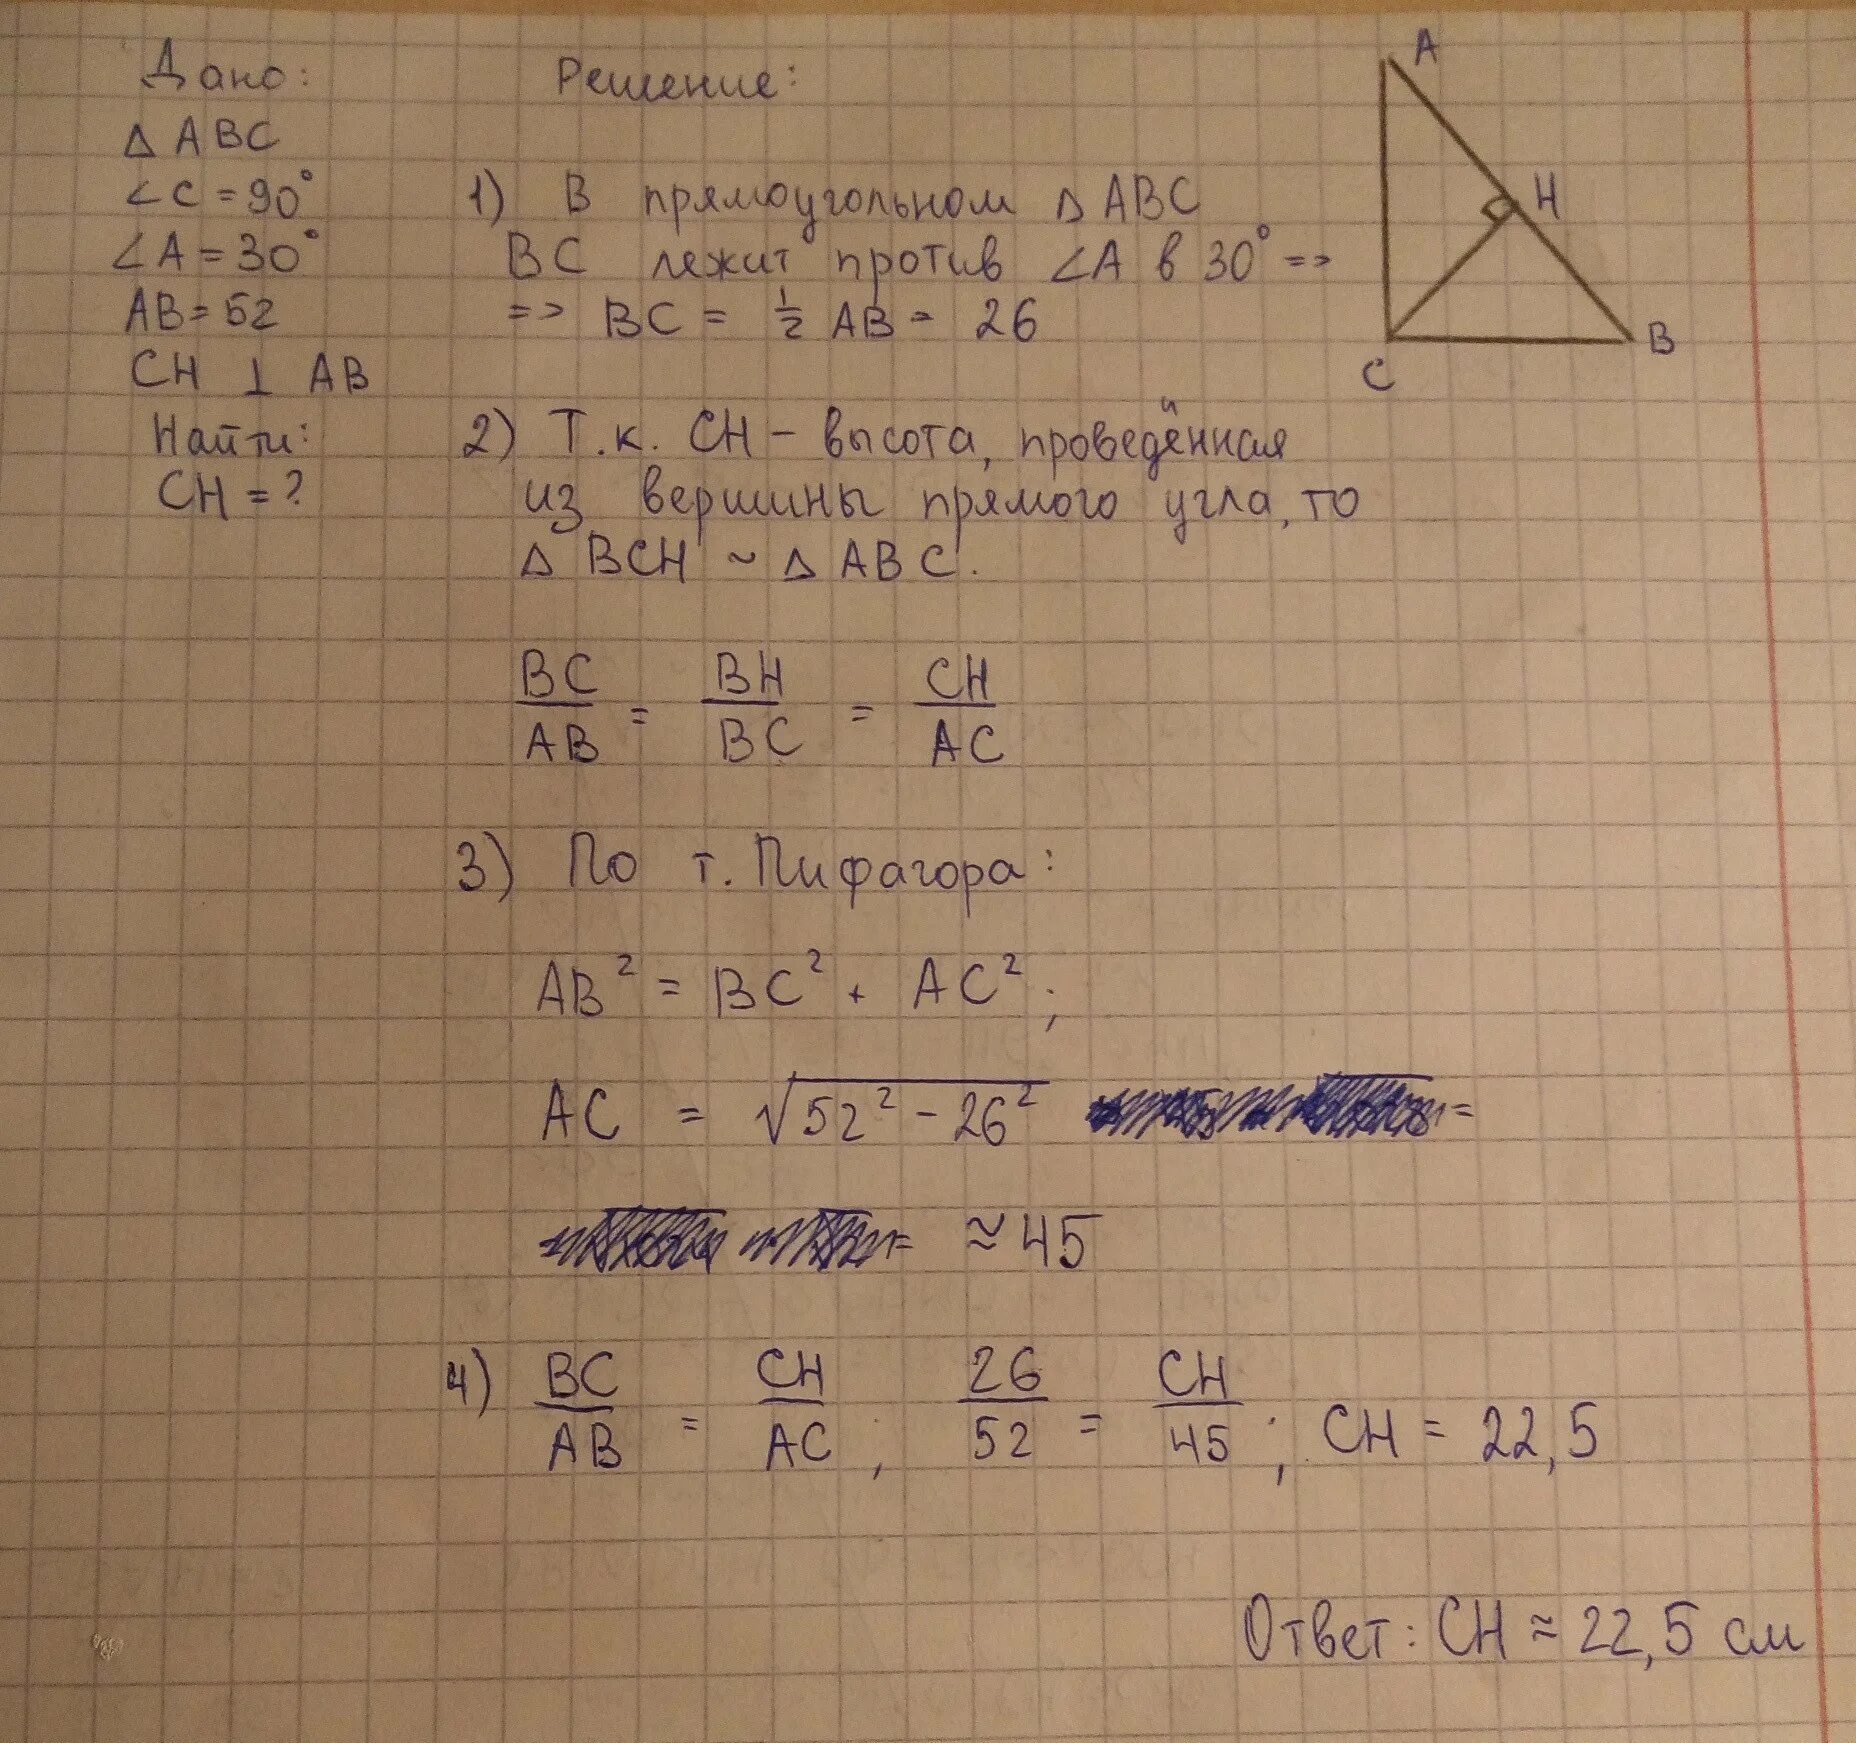 Дано:
△ ABC
∠C = 90°
∠A = 30°
AB = 52
CH ⊥ AB
Найти:
CH = ?
Решение:
1) В прямоугольном △ ABC
BC лежит против ∠A в 30° =>
=> BC = 1/2 AB = 26
2) Т.к. CH – высота, проведённая
из вершины прямого угла, то
△ BCH ~ △ ABC.
BC/AB = BH/BC = CH/AC
3) По т. Пифагора:
AB² = BC² + AC²;
AC = √52² - 26² =
= ≈ 45
4) BC/AB = CH/AC; 26/52 = CH/45; CH = 22,5
Ответ: CH ≈ 22,5 см
A
H
B
C